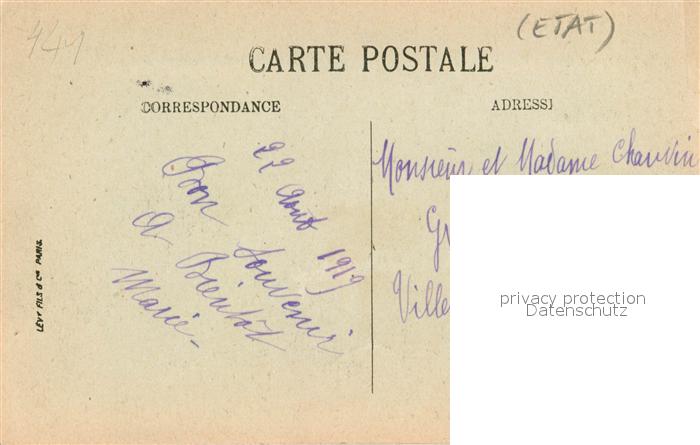 441
(ETAT)
CARTE POSTALE
CORRESPONDANCE
ADRESSE
22 Août 1919
Bon Souvenir
A Bientôt
Marie-
Monsieur et Madame Chauvin
Gr
Ville
privacy protection
Datenschutz
LÉVY FILS & Cie PARIS